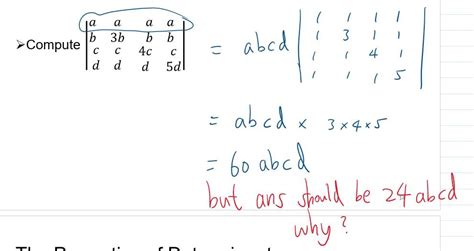 ➤Compute
a a a a
b 3b b b
c c 4c c
d d d 5d
= abcd
1 1 1 1
1 3 1 1
1 1 4 1
1 1 1 5
= abcd × 3×4×5
= 60 abcd
but ans should be 24 abcd
why?